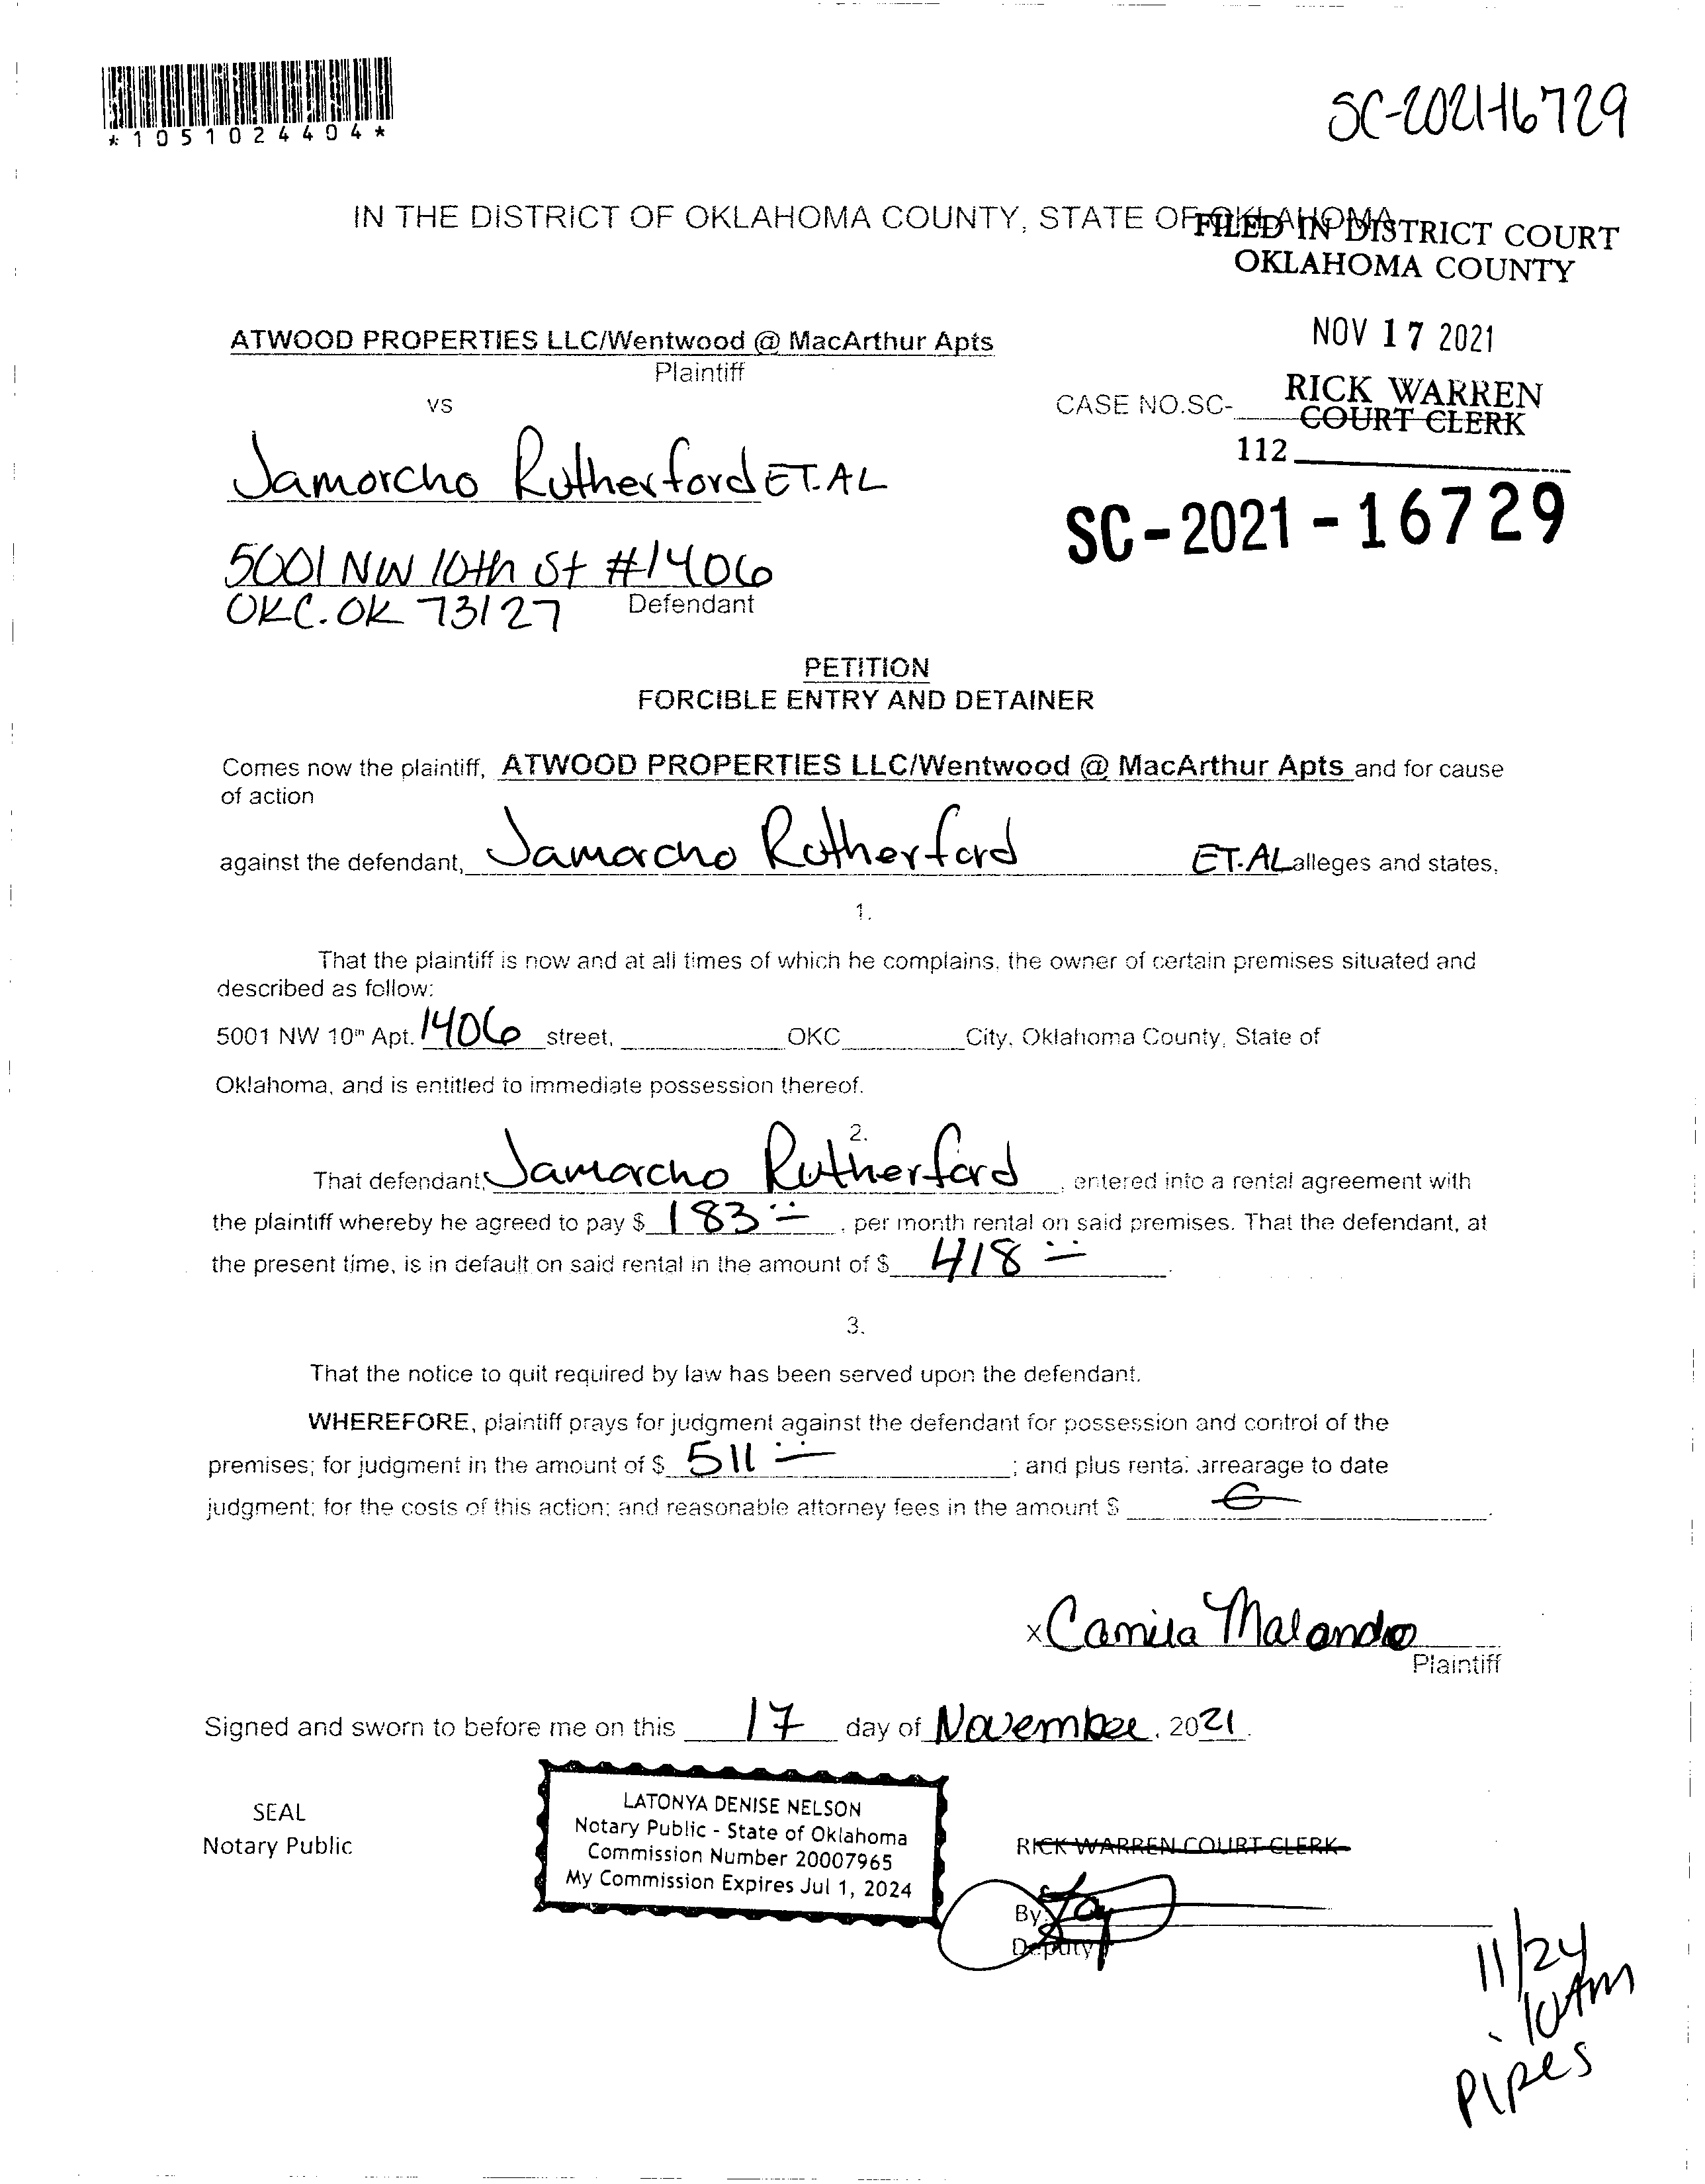 *1051024404*
SC-2021-16729
IN THE DISTRICT OF OKLAHOMA COUNTY, STATE OF OKLAHOMA
FILED IN DISTRICT COURT
OKLAHOMA COUNTY
NOV 17 2021
RICK WARREN
COURT CLERK
112
ATWOOD PROPERTIES LLC/Wentwood @ MacArthur Apts
Plaintiff
vs
CASE NO.SC-
Jamorcho Rutherford ET.AL
SC-2021-16729
5001 NW 10th St #1406
OKC. OK 73127 Defendant
PETITION
FORCIBLE ENTRY AND DETAINER
Comes now the plaintiff, ATWOOD PROPERTIES LLC/Wentwood @ MacArthur Apts and for cause
of action
against the defendant, Jamarcho Rutherford ET.AL alleges and states,
1.
That the plaintiff is now and at all times of which he complains, the owner of certain premises situated and
described as follow:
5001 NW 10th Apt. 1406 street, OKC City, Oklahoma County, State of
Oklahoma, and is entitled to immediate possession thereof.
2.
That defendant, Jamarcho Rutherford, entered into a rental agreement with
the plaintiff whereby he agreed to pay $ 183, per month rental on said premises. That the defendant, at
the present time, is in default on said rental in the amount of $ 418.
3.
That the notice to quit required by law has been served upon the defendant.
WHEREFORE, plaintiff prays for judgment against the defendant for possession and control of the
premises; for judgment in the amount of $ 511; and plus rental arrearage to date
judgment; for the costs of this action; and reasonable attorney fees in the amount $
x Camila Malando
Plaintiff
Signed and sworn to before me on this 17 day of November, 2021.
SEAL
Notary Public
LATONYA DENISE NELSON
Notary Public - State of Oklahoma
Commission Number 20007965
My Commission Expires Jul 1, 2024
RICK WARREN COURT CLERK
By:
Deputy
11/24
10Am
Pipes